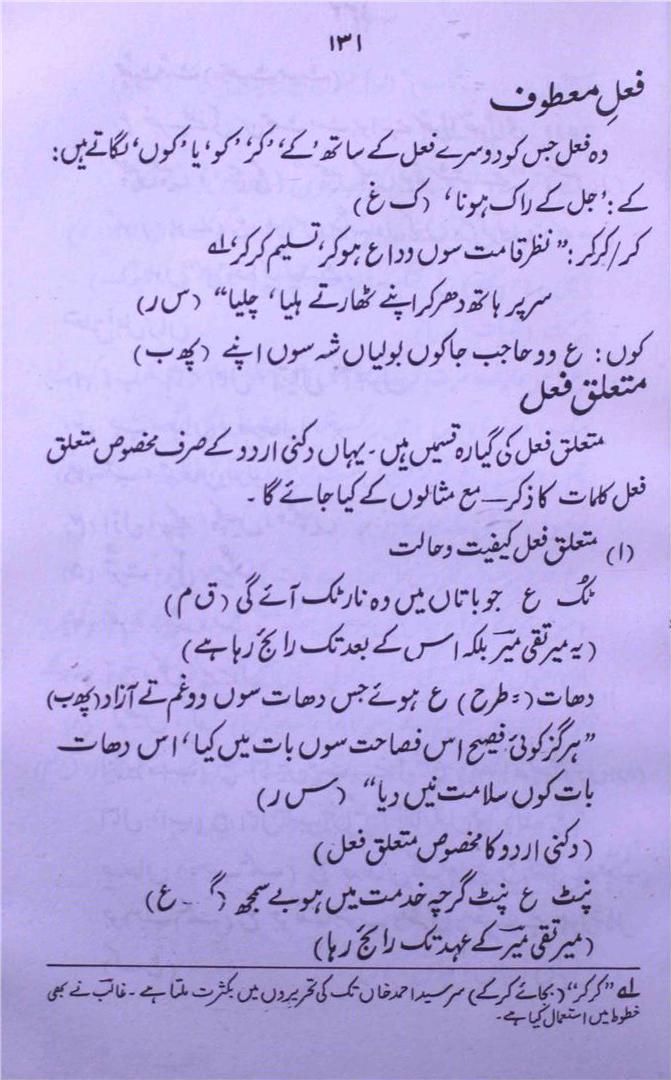 ۱۳۱
فعلِ معطوف
وہ فعل جس کو دوسرے فعل کے ساتھ ’کے‘، ’کر‘، ’کو‘، یا ’کوں‘، لگاتے ہیں:
کے: ’جل کے راک ہونا‘ (ک غ)
کر/کرکر: ”نظر قامت سوں وداع ہوکر، تسلیم کرکر، ۱ے
سر پر ہاتھ دھر کر اپنے ٹھار تے ہلیا، چلیا“ (س ر)
کوں: ع وو حاجب جاکوں بولیاں شہ سوں اپنے (پھ ب)
متعلق فعل
متعلق فعل کی گیارہ قسمیں ہیں۔ یہاں دکنی اردو کے صرف مخصوص متعلق
فعل کلمات کا ذکر — مع مثالوں کے کیا جائے گا۔
(۱) متعلق فعل کیفیت و حالت
ٹک ع جو باتاں میں وہ نار ٹک آئے گی (ق م)
(یہ میر تقی میرؔ بلکہ اس کے بعد تک رائج رہا ہے)
دھات (= طرح) ع ہوئے جس دھات سوں وو غم تے آزاد (پھ ب)
”ہرگز کوئی فصیح اس فصاحت سوں بات میں کیا، اس دھات
بات کوں سلامت نیں دیا“ (س ر)
(دکنی اردو کا مخصوص متعلق فعل)
نپٹ ع نپٹ گرچہ خدمت میں ہو بے سمجھ (گ ۔ ع)
(میر تقی میرؔ کے عہد تک رائج رہا)
۱ے ”کرکر“ (بجائے کرکے) سرسید احمد خاں تک کی تحریروں میں بکثرت ملتا ہے۔ غالبؔ نے بھی
خطوط میں استعمال کیا ہے۔